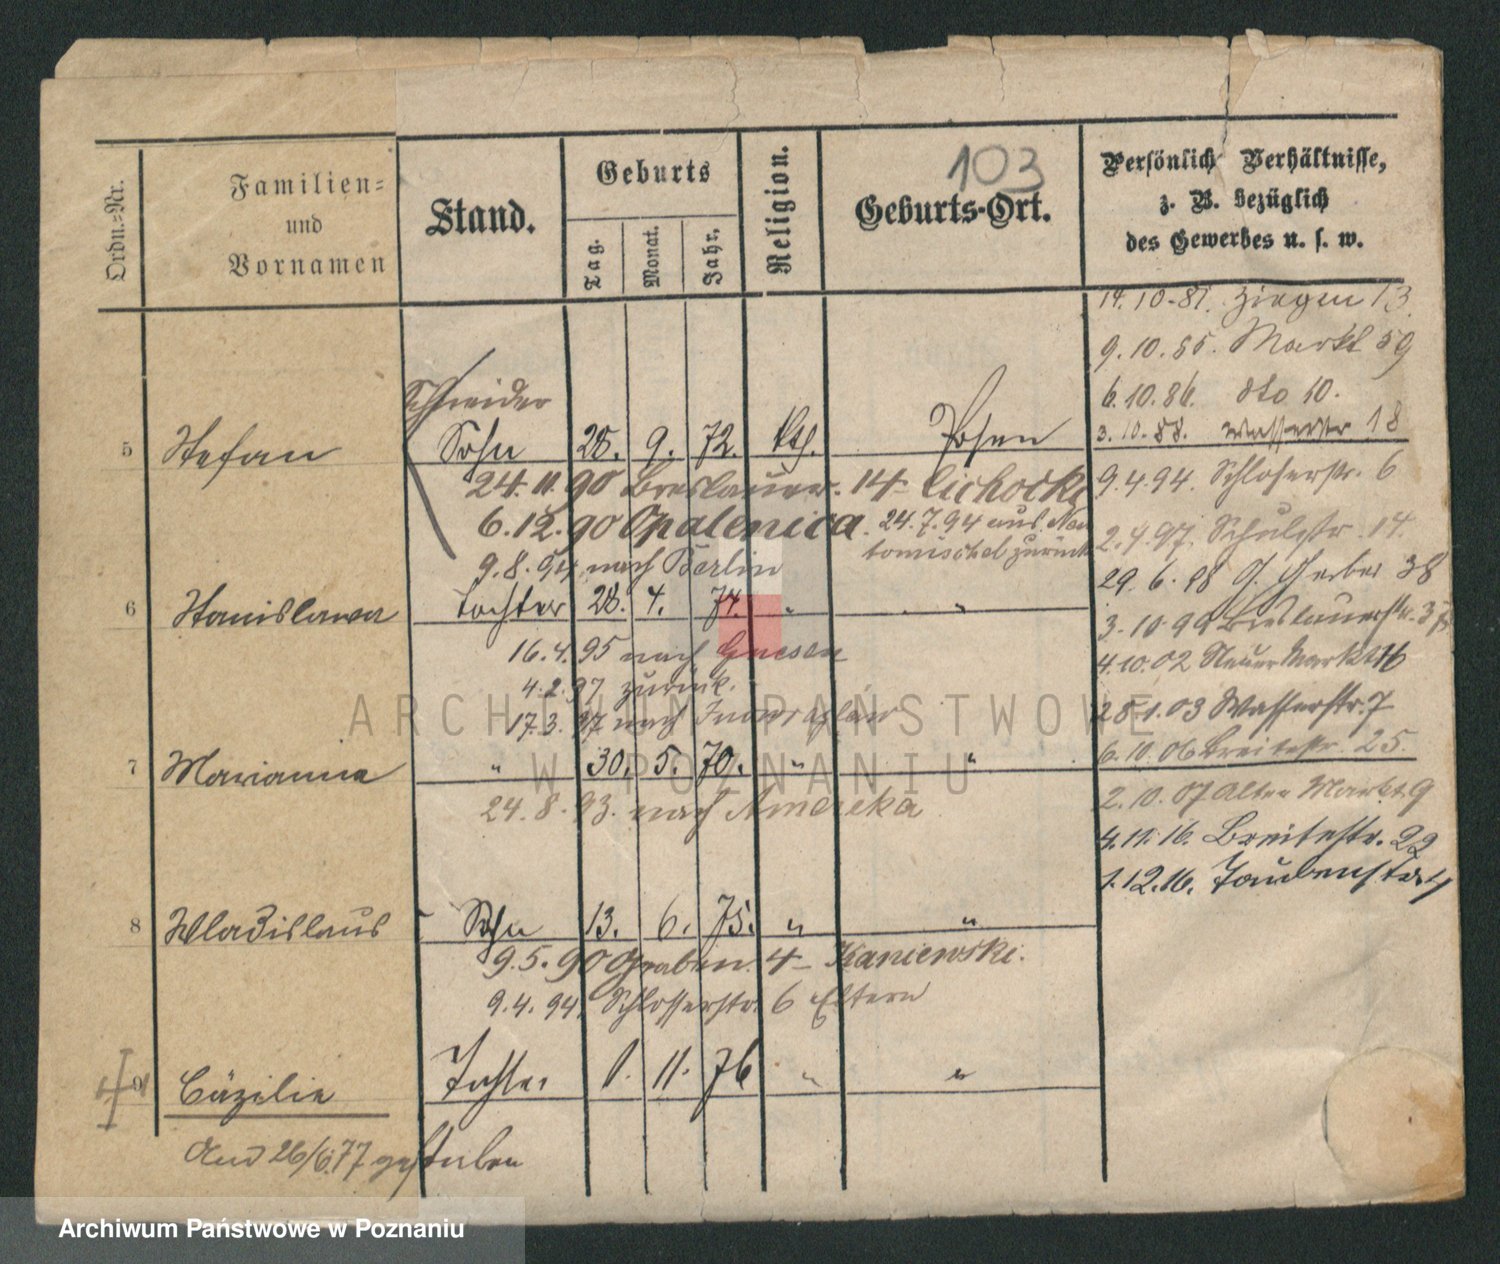 103
Ordn.-Nr.
Familien-
und
Vornamen
Stand.
Geburts
Tag.
Monat.
Jahr.
Religion.
Geburts-Ort.
Persönlich Verhältnisse,
z. B. bezüglich
des Gewerbes u. s. w.
14. 10. 81. Ziegen 13.
9. 10. 85. Markt 59
6. 10. 86. dto 10.
3. 10. 88. Wasserstr 18
9. 4. 94. Schloßerstr. 6
2. 4. 97. Schulstr. 14.
29. 6. 98 G. Gerber 38
3. 10 99 Breslauerstr. 37
4. 10. 02 Neuer Markt 16
28. 1. 03 Wasserstr. 7
6. 10. 06 Breitestr. 25.
2. 10. 07 Alter Markt 9
4. 11. 16. Breitestr. 22
1. 12. 16. Taubenstr. 4
Schneider
5 Stefan Sohn 28. 9. 72. kth. Posen
24. 11. 90 Breslauer. 14 - Cichocki
6. 12. 90 Opalenica. 24. 7. 94 aus Neu
tomischel zurück
9. 8. 94 nach Berlin
6 Stanislawa Tochter 28. 4. 74. " "
16. 4. 95 nach Gnesen
4. 2. 97 zurück.
17. 3. 97 nach Inowrazlaw
7 Marianna " 30. 5. 70. " "
24. 8. 93. nach Amerika
8 Wladislaus Sohn 13. 6. 75. " "
9. 5. 90 Graben. 4 - Kaniewski.
9. 4. 94. Schlosserstr. 6 Eltern
9 Cäzilie Tochter 1. 11. 76 " "
26/6. 77 gestorben
ARCHIWUM PAŃSTWOWE
W POZNANIU
Archiwum Państwowe w Poznaniu